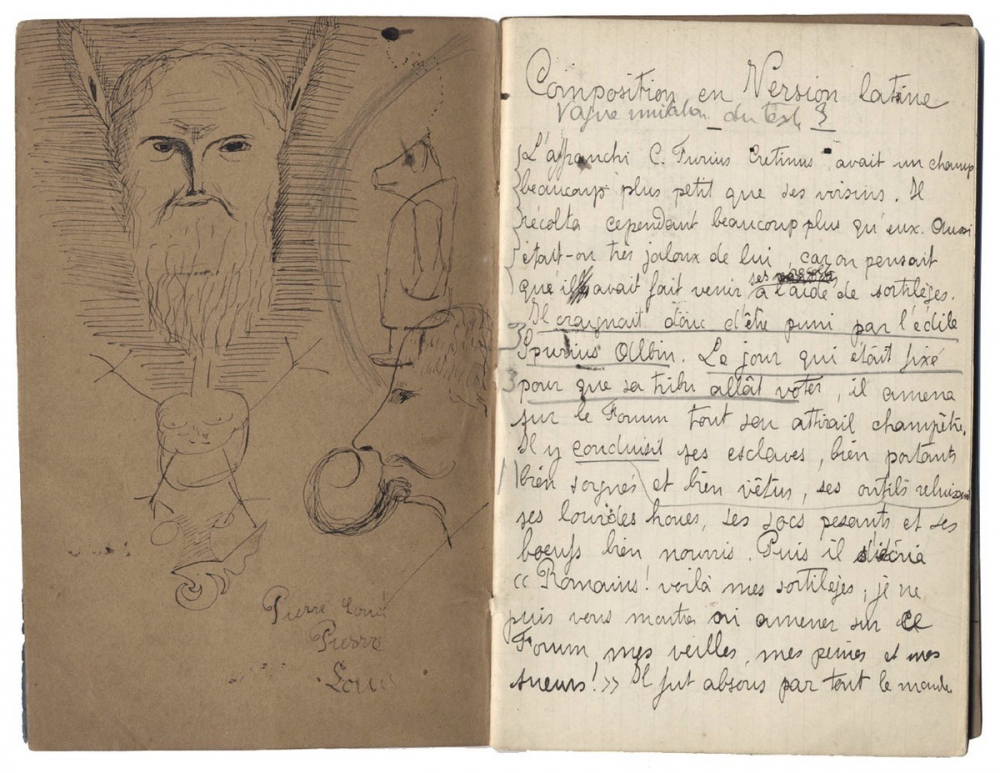 Pierre Louis
Pierre
Louis
Composition en Version latine
Vague imitation du texte 3
L'affranchi C. Furius Cretinus avait un champ
beaucoup plus petit que ses voisins. Il
récolta cependant beaucoup plus qu'eux. Aussi
était-on très jaloux de lui, car on pensait
qu'il avait fait venir ses à l'aide de sortilèges.
Il craignait donc d'être puni par l'édile
3 Spurius Albin. Le jour qui était fixé
3 pour que sa tribu allât voter, il amena
sur le Forum tout son attirail champêtre.
Il y conduisit ses esclaves, bien portants
bien soignés et bien vêtus, ses outils reluisants
ses lourdes houes, ses socs pesants et ses
boeufs bien nourris. Puis il s'écria
« Romains! voilà mes sortilèges, je ne
puis vous montrer ni amener sur ce
Forum, mes veilles, mes peines et mes
sueurs! » Il fut absous par tout le monde